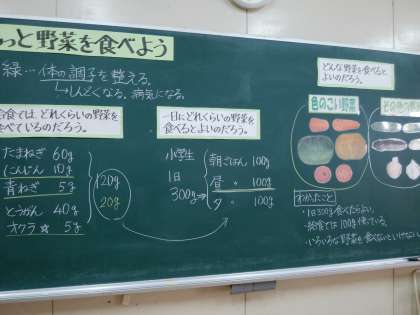 っと野菜を食べよう
緑…体の調子を整える。
しんどくなる。病気になる。
給食では、どれくらいの野菜を
食べているのだろう。
たまねぎ 60g
にんじん 10g
青ねぎ 5g
とうがん 40g
オクラ☆ 5g
120g
20g
一日にどれくらいの野菜を
食べるとよいのだろう。
小学生
1日
300g⇒
朝ごはん 100g
昼 〃 100g
夕 〃 100g
どんな野菜を食べると
よいのだろう。
色のこい野菜
その他の
わかったこと
・1日300g食べたらよい。
・給食では100g使っている。
・いろいろな野菜を食べないといけない